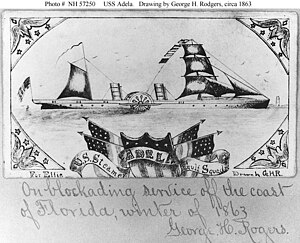 Photo # NH 57250 USS Adela Drawing by George H. Rodgers, circa 1863
U.S. Steamer ADELA Gulf Squad
For Ellis Drawn by G.H.R.
On blockading service off the coast
of Florida, winter of 1863
George H. Rogers.